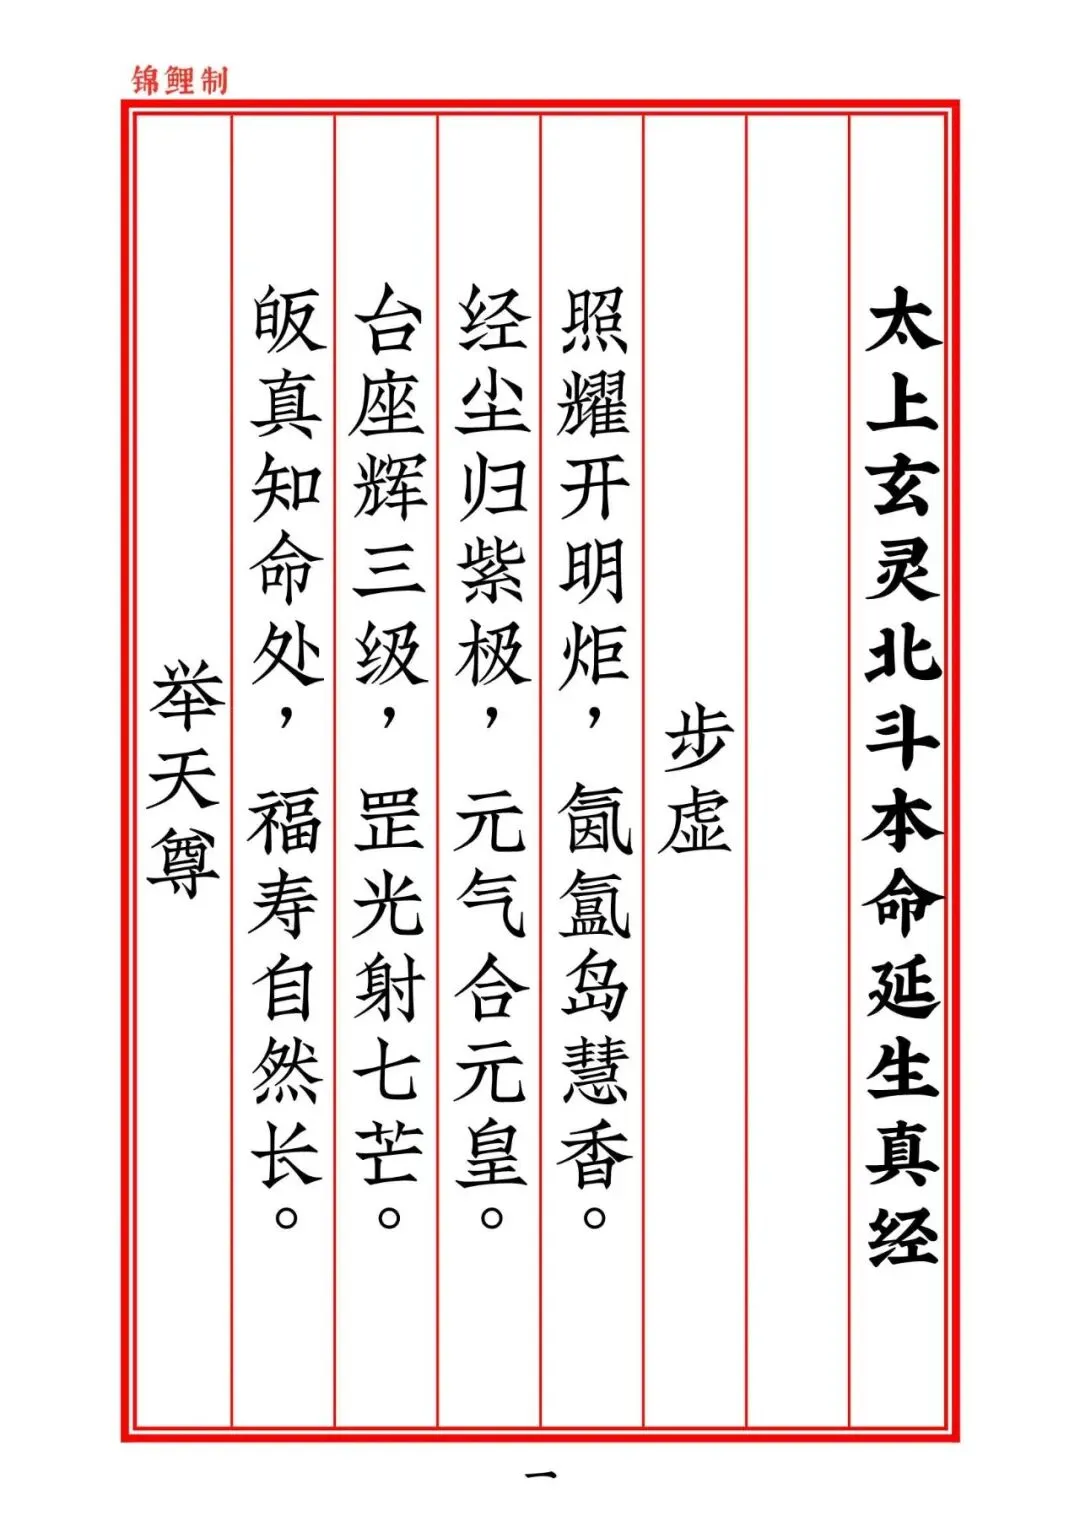 锦鲤制
太上玄灵北斗本命延生真经
步虚
照耀开明炬，氤氲岛慧香。
经尘归紫极，元气合元皇。
台座辉三级，罡光射七芒。
皈真知命处，福寿自然长。
举天尊
一